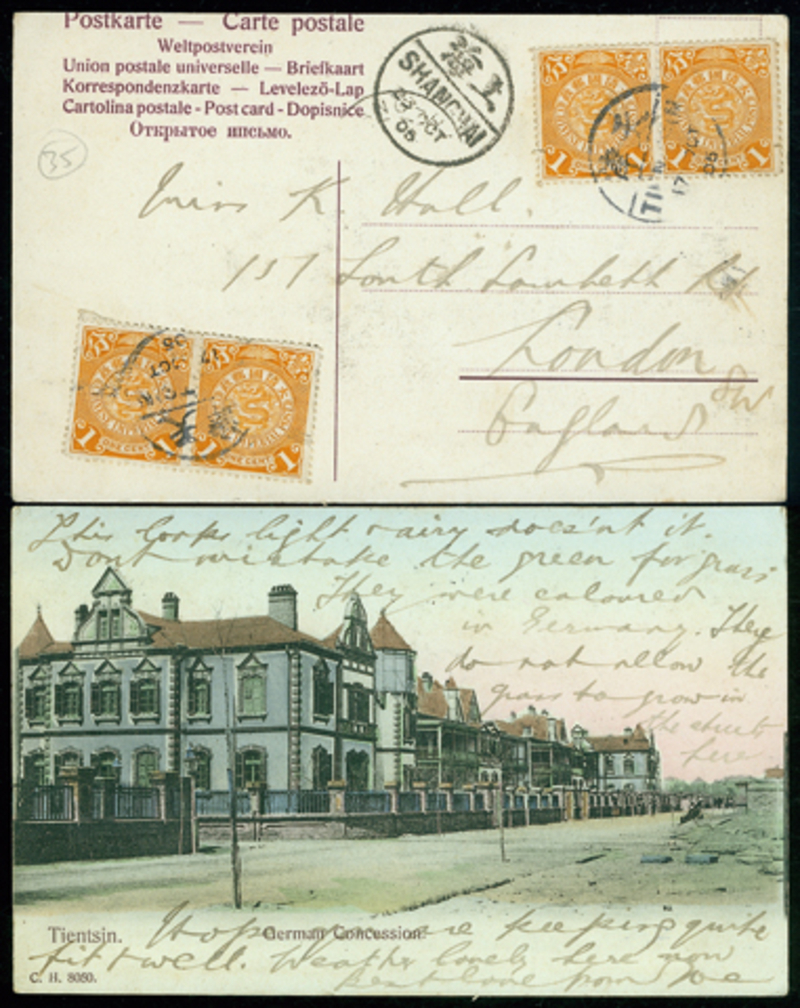 Postkarte — Carte postale
Weltpostverein
Union postale universelle — Briefkaart
Korrespondenzkarte — Levelező-Lap
Cartolina postale - Post card - Dopisnice
Открытое письмо.
35
海上
SHANGHAI
OCT
06
1 1
TIEN
17 OCT
Miss K. Hall.
151 South Lambeth Rd
London
SW
England
17 OCT
1 ONE CENT 1 ONE CENT 1
This looks light & airy does'nt it.
Dont mistake the green for grass
They were coloured
in Germany. They
do not allow the
grass to grow in
the streets
here
Tientsin. German Concession
Hope you are keeping quite
fit & well. Weather lovely here now
C. H. 8050.
Best love from